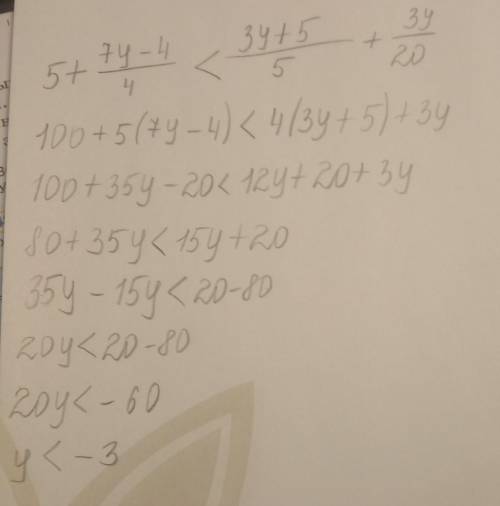 5+ (7y-4)/4 < (3y+5)/5 + 3y/20
100+5(7y-4)<4(3y+5)+3y
100+35y-20<12y+20+3y
80+35y<15y+20
35y-15y<20-80
20y<20-80
20y<-60
y<-3